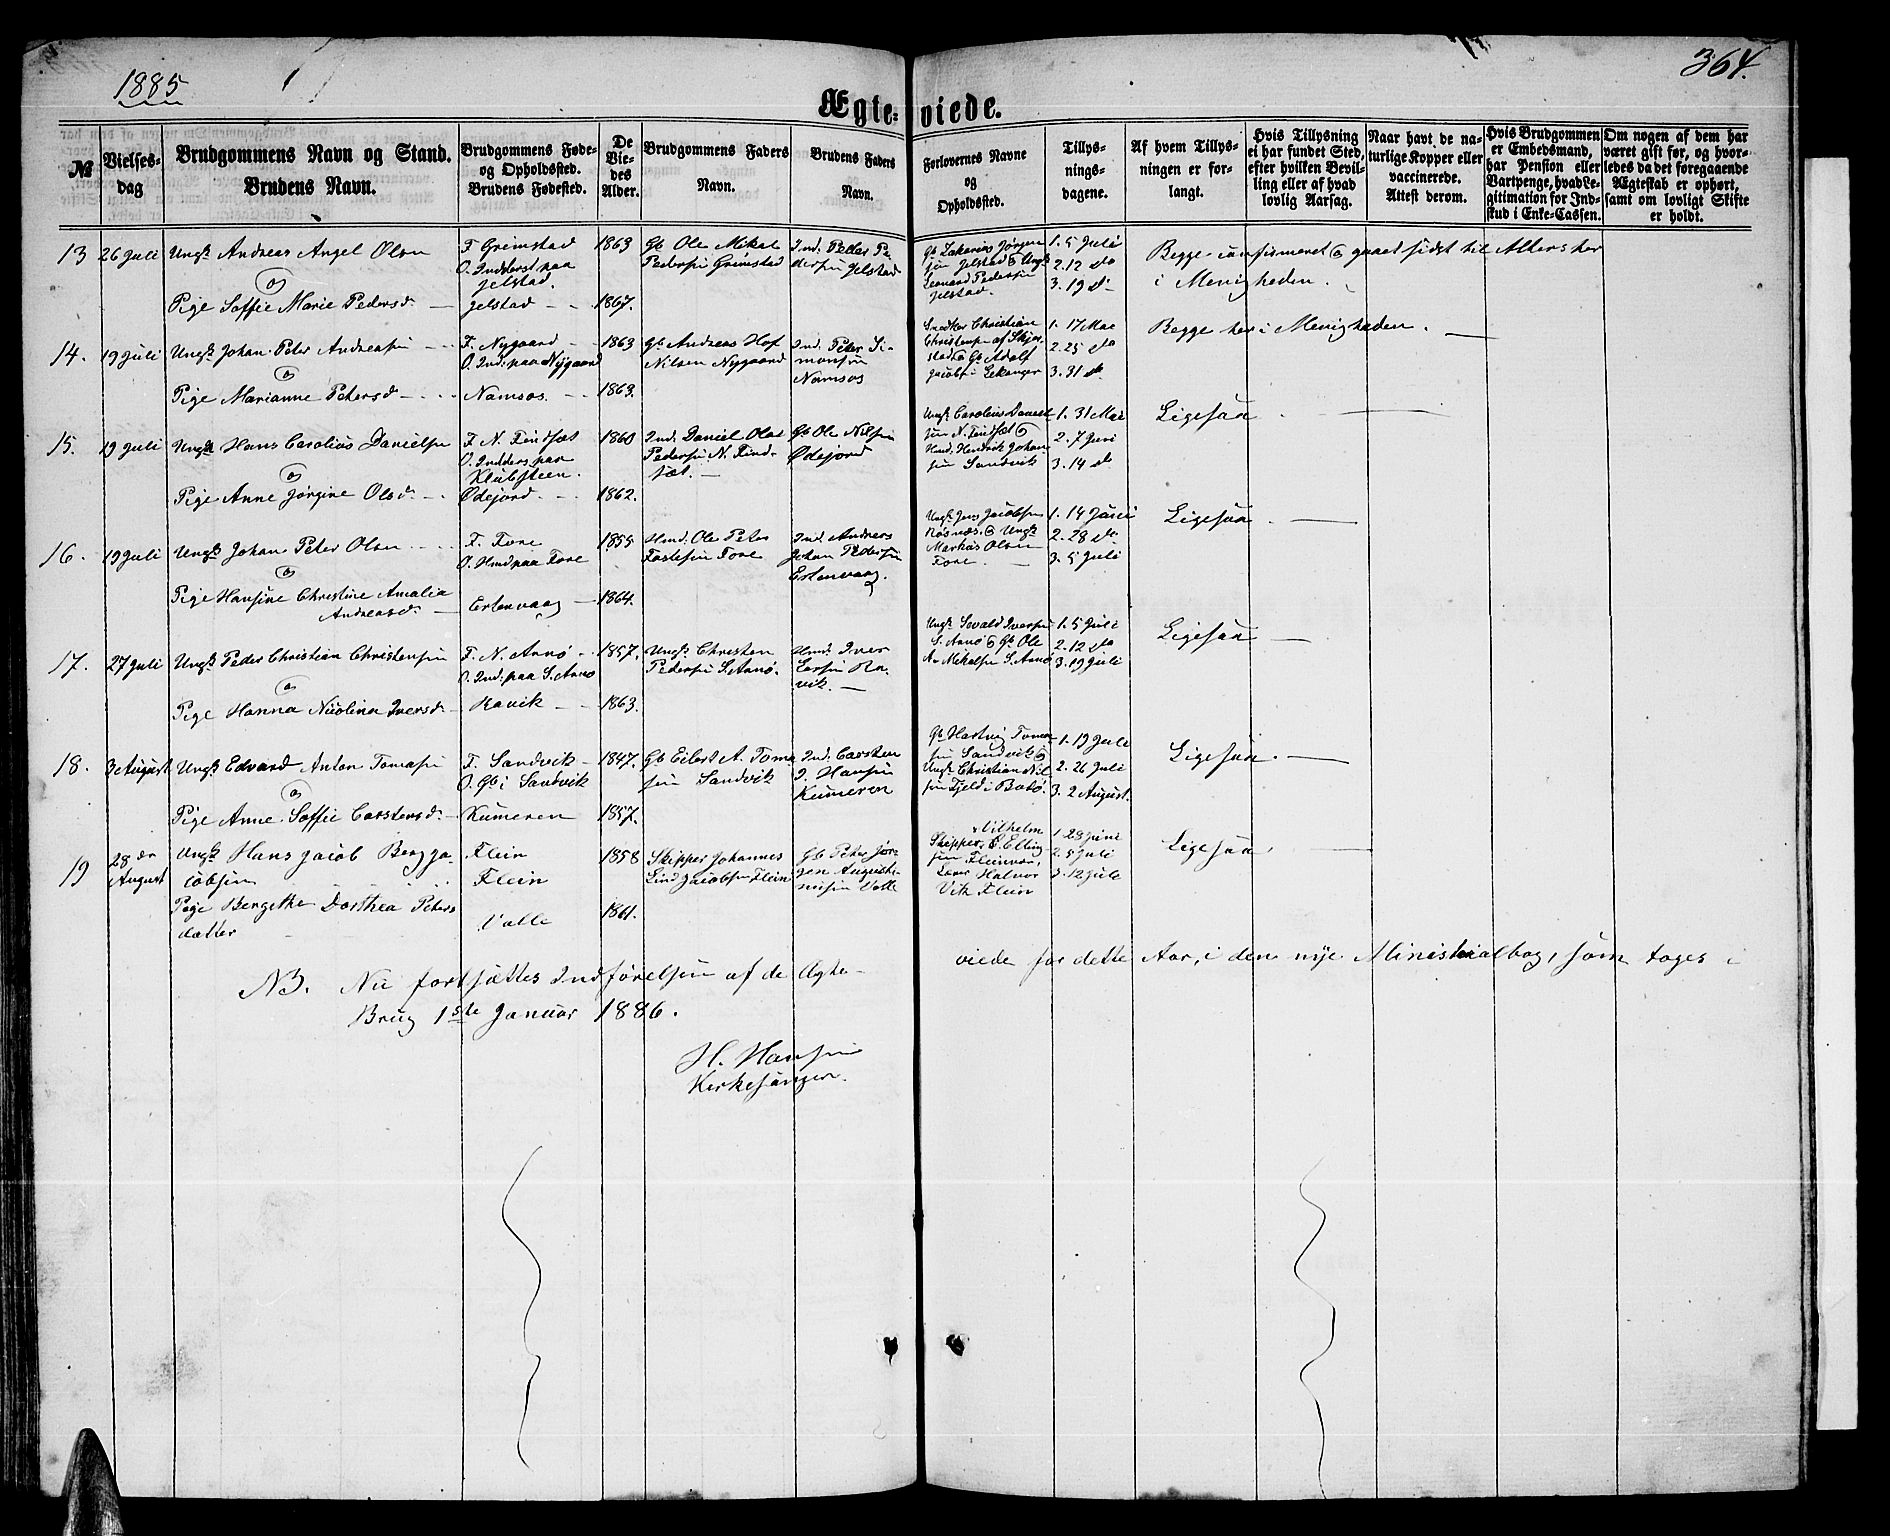 1885
364.
Ægteviede.
№
Vielsesdag
Brudgommens Navn og Stand.
Brudens Navn.
Brudgommens Føde- og Opholdssted.
Brudens Fødested.
De Viedes Alder.
Brudgommens Faders Navn.
Brudens Faders Navn.
Forlovernes Navne og Opholdssted.
Tillysningsdagene.
Af hvem Tillysningen er forlangt.
Hvis Tillysning ei har fundet Sted, efter hvilken Bevilling eller af hvad lovlig Aarsag.
Naar havt de naturlige Kopper eller vaccinerede. Attest derom.
Hvis Brudgommen er Embedsmand, har Pension eller Vartpenge, hvad Legitimation for Indskud i Enke-Cassen.
Om nogen af dem har været gift før, og hvorledes da det foregaaende Ægteskab er ophørt, samt om lovligt Skifte er holdt.
13 26 Juli Ungk. Andreas Angel Olsen F. Grimstad 1863 Gb Ole Mikal Ind. Peder Pe-
O. Indderst paa Pedersen Grimstad dersen Jelstad
Jelstad.
Pige Soffie Marie Pedersd. Jelstad 1867.
Gb Zakarias Jørgen- 1. 5 Juli Begge confirmeret & gaaet sidst til Alters her
sen Jelstad & Ungk. 2. 12 do i Menigheden.
Leonard Pedersen 3. 19 d.
Jelstad.
14. 19 Juli Ungk. Johan Peter Andreassen F. Nygaard 1863 Gb Andreas Hof Ind. Peter Si-
O. Ind: paa Nygaard Nilsen Nygaard monsen
Namsos
Pige Marianne Petersd. Namsos. 1863.
Snedker Christian 1. 17 Mai Begge her i Menigheden.
Christensen af Skjer- 2. 25 do
stad & Gb Adolf
Jacobs. i Lekanger 3. 31 d.
15. 19 Juli Ungk. Hans Carolius Danielsen F. N. Findsæt 1860 Ind. Daniel Olai Gb Ole Nilsen
O. Indders paa Pedersen N. Find- Ødejord
Klubsteen. sæt.
Pige Anne Jørgine Olsd. Ødejord. 1862.
Ungk. Carolius Daniel- 1. 31 Mai Ligesaa
sen N. Findset & 2. 7 Juni
Hmd. Hendrik Johan- 3. 14 d.
sen Sandvik
16. 19 Juli Ungk. Johan Peter Olsen F. Fore 1855 Hmd. Ole Peter Ind. Andreas
O. Hmd paa Fore Fastesen Fore Johan Pedersen
Estenvaag.
Pige Hansine Christine Amalia Estenvaag 1864.
Andreasd.
Ungk. Jens Jacobsen 1. 14 Juni Ligesaa.
Røsnæs, & Ungk. 2. 28 do
Markus Olsen
Fore. 3. 5 Juli
17. 27 Juli Ungk. Peder Christian Christensen F. N. Arnø 1857. Ungk. Christen Hmd. Iver
O. Ind: paa S. Arnø Pedersen S. Arnø. Larsen Ra-
vik.
Pige Hanna Nicolina Iversd. Ravik 1863.
Ungk. Sevald Iversen 1. 5 Juli Ligesaa
S. Arnø & Gb Ole 2. 12 do
A. Mekalsen S. Arnø 3. 19 Juli
18. 3 August Ungk. Edvard Anton Tomasen F. Sandvik 1847. Gb Eilert A. Toma- Ind. Carsten
O. Gb i Sandvik sen Sandvik J. Hansen
Kumeren
Pige Anne Soffie Carstensd. Kumeren 1857.
Gb Hartvig Tomas- 1. 19 Juli
sen Sandvik & Ligesaa.
Ungk. Christian Nil- 2. 26 Juli
sen Fjeld i Bodø. 3. 2 August.
19 28de August Ungk. Hans Jacob Berg Ja- Flein 1858 Skipper Johannes Gb Peter Jør-
cobsen Flein Lind Jacobsen Flein gen Auguste-
nusen Valle
Pige Bergethe Dorthea Peters- Valle 1861.
datter
Vilhelm 1. 28 Juni Ligesaa.
Skipper P. Elling- 2. 5 Juli
sen Fleinvær,
Lærer Halvor 3. 12 Juli
Vik Flein
NB. Nu fortsættes Indførelsen af de Ægte- viede for dette Aar, i den nye Ministerialbog, som tages i
Brug 1ste Januar 1886.
H. Hansen
Kirkesanger.